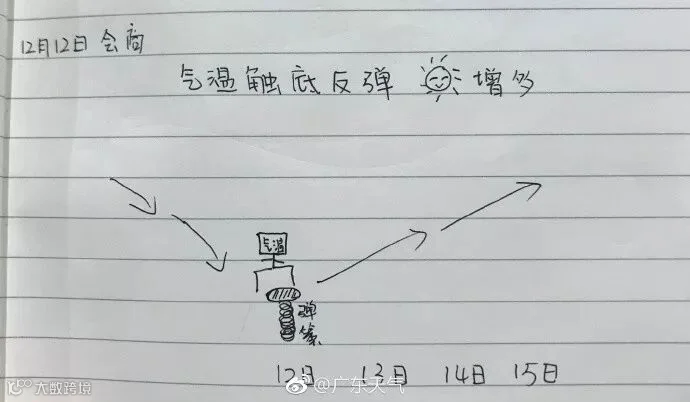 12月12日会商
气温触底反弹 增多
气温
弹簧
12日 13日 14日 15日
@广东天气
大数跨境